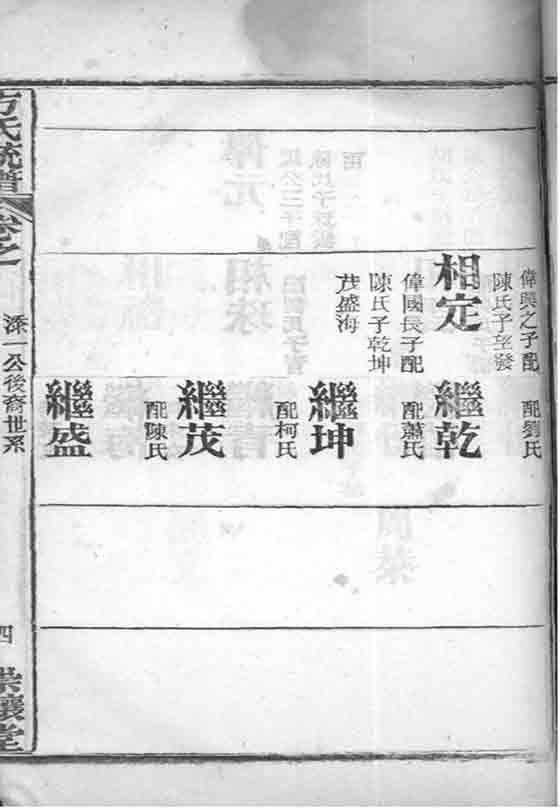 偉興之子配
陳氏子望發
相定
偉國長子配
陳氏子乾坤
茂盛海
配劉氏
繼乾
配蕭氏
繼坤
配柯氏
繼茂
配陳氏
繼盛
方氏統譜
卷之一
一公後裔世系
四
崇讓堂